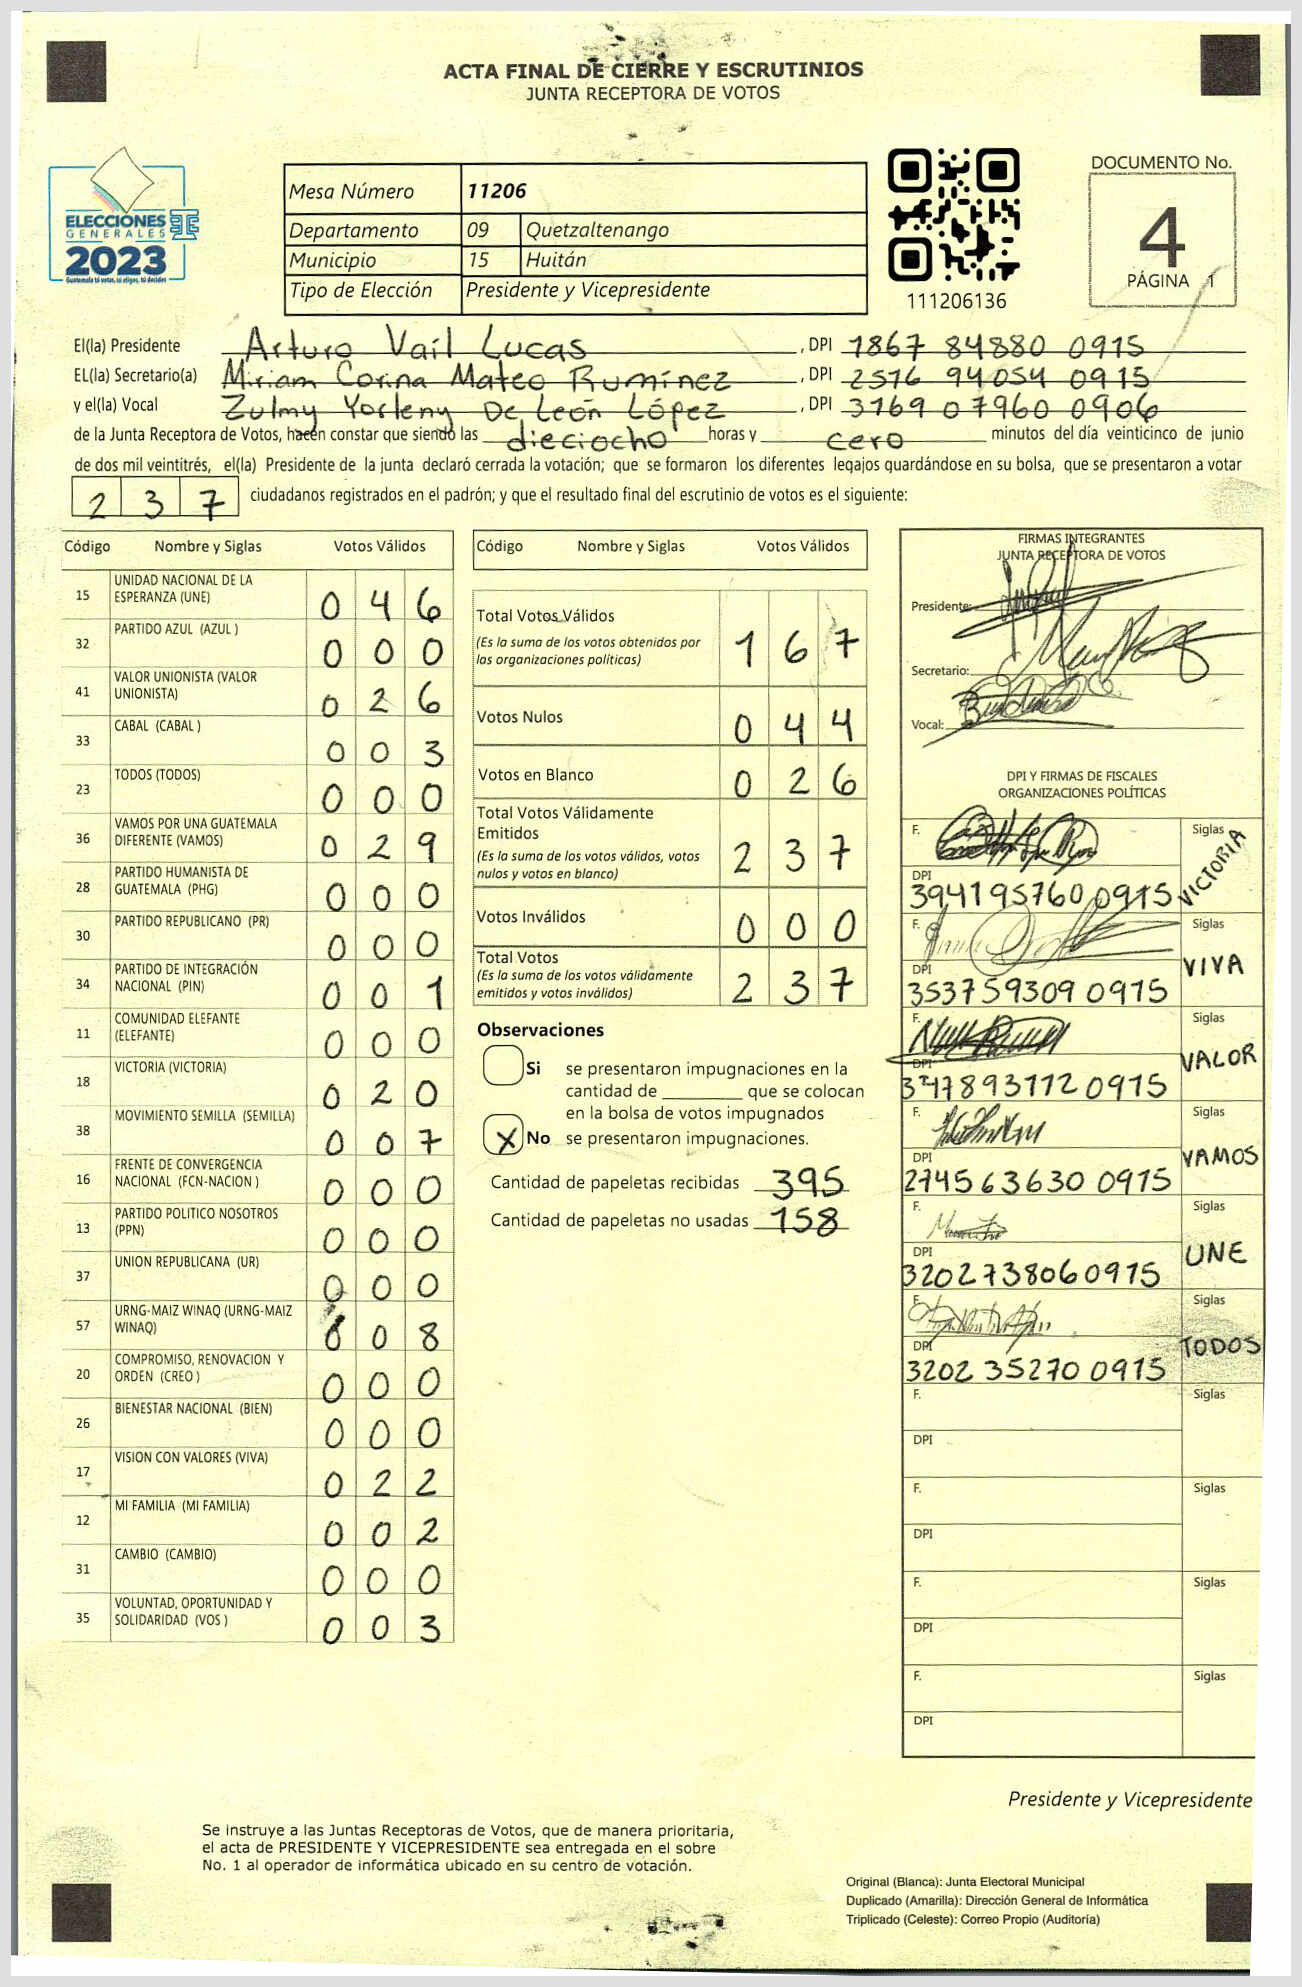 ACTA FINAL DE CIERRE Y ESCRUTINIOS
JUNTA RECEPTORA DE VOTOS
ELECCIONES
GENERALES
2023
Guatemala tú votas, tú eliges, tú decides
Mesa Número 11206
Departamento 09 Quetzaltenango
Municipio 15 Huitán
Tipo de Elección Presidente y Vicepresidente
111206136
DOCUMENTO No.
4
PÁGINA 1
El(la) Presidente Arturo Vaíl Lucas, DPI 1867 84880 0915
EL(la) Secretario(a) Miriam Corina Mateo Rumínez, DPI 2516 94054 0915
y el(la) Vocal Zulmy Yorleny De León López, DPI 3169 07960 0906
de la Junta Receptora de Votos, hacen constar que siendo las dieciocho horas y cero minutos del día veinticinco de junio
de dos mil veintitrés, el(la) Presidente de la junta declaró cerrada la votación; que se formaron los diferentes legajos guardándose en su bolsa, que se presentaron a votar
237 ciudadanos registrados en el padrón; y que el resultado final del escrutinio de votos es el siguiente:
Código Nombre y Siglas Votos Válidos
15 UNIDAD NACIONAL DE LA ESPERANZA (UNE) 0 4 6
32 PARTIDO AZUL (AZUL ) 0 0 0
41 VALOR UNIONISTA (VALOR UNIONISTA) 0 2 6
33 CABAL (CABAL ) 0 0 3
23 TODOS (TODOS) 0 0 0
36 VAMOS POR UNA GUATEMALA DIFERENTE (VAMOS) 0 2 9
28 PARTIDO HUMANISTA DE GUATEMALA (PHG) 0 0 0
30 PARTIDO REPUBLICANO (PR) 0 0 0
34 PARTIDO DE INTEGRACIÓN NACIONAL (PIN) 0 0 1
11 COMUNIDAD ELEFANTE (ELEFANTE) 0 0 0
18 VICTORIA (VICTORIA) 0 2 0
38 MOVIMIENTO SEMILLA (SEMILLA) 0 0 7
16 FRENTE DE CONVERGENCIA NACIONAL (FCN-NACION ) 0 0 0
13 PARTIDO POLITICO NOSOTROS (PPN) 0 0 0
37 UNION REPUBLICANA (UR) 0 0 0
57 URNG-MAIZ WINAQ (URNG-MAIZ WINAQ) 0 0 8
20 COMPROMISO, RENOVACION Y ORDEN (CREO ) 0 0 0
26 BIENESTAR NACIONAL (BIEN) 0 0 0
17 VISION CON VALORES (VIVA) 0 2 2
12 MI FAMILIA (MI FAMILIA) 0 0 2
31 CAMBIO (CAMBIO) 0 0 0
35 VOLUNTAD, OPORTUNIDAD Y SOLIDARIDAD (VOS ) 0 0 3
Código Nombre y Siglas Votos Válidos
Total Votos Válidos 1 6 7
(Es la suma de los votos obtenidos por
las organizaciones políticas)
Votos Nulos 0 4 4
Votos en Blanco 0 2 6
Total Votos Válidamente
Emitidos 2 3 7
(Es la suma de los votos válidos, votos
nulos y votos en blanco)
Votos Inválidos 0 0 0
Total Votos 2 3 7
(Es la suma de los votos válidamente
emitidos y votos inválidos)
Observaciones
Si se presentaron impugnaciones en la
cantidad de ________ que se colocan
en la bolsa de votos impugnados
X No se presentaron impugnaciones.
Cantidad de papeletas recibidas 395
Cantidad de papeletas no usadas 158
FIRMAS INTEGRANTES
JUNTA RECEPTORA DE VOTOS
Presidente:
Secretario:
Vocal:
DPI Y FIRMAS DE FISCALES
ORGANIZACIONES POLÍTICAS
F. Siglas VICTORIA
DPI 394195760 0915
F. Siglas VIVA
DPI 353759309 0915
F. Siglas VALOR
DPI 0915
F. Siglas VAMOS
DPI 274563630 0915
F. Siglas UNE
DPI 320273806 0915
F. Siglas TODOS
DPI 3202 35270 0915
F. Siglas
DPI
F. Siglas
DPI
F. Siglas
DPI
F. Siglas
DPI
Presidente y Vicepresidente
Se instruye a las Juntas Receptoras de Votos, que de manera prioritaria,
el acta de PRESIDENTE Y VICEPRESIDENTE sea entregada en el sobre
No. 1 al operador de informática ubicado en su centro de votación.
Original (Blanca): Junta Electoral Municipal
Duplicado (Amarilla): Dirección General de Informática
Triplicado (Celeste): Correo Propio (Auditoría)